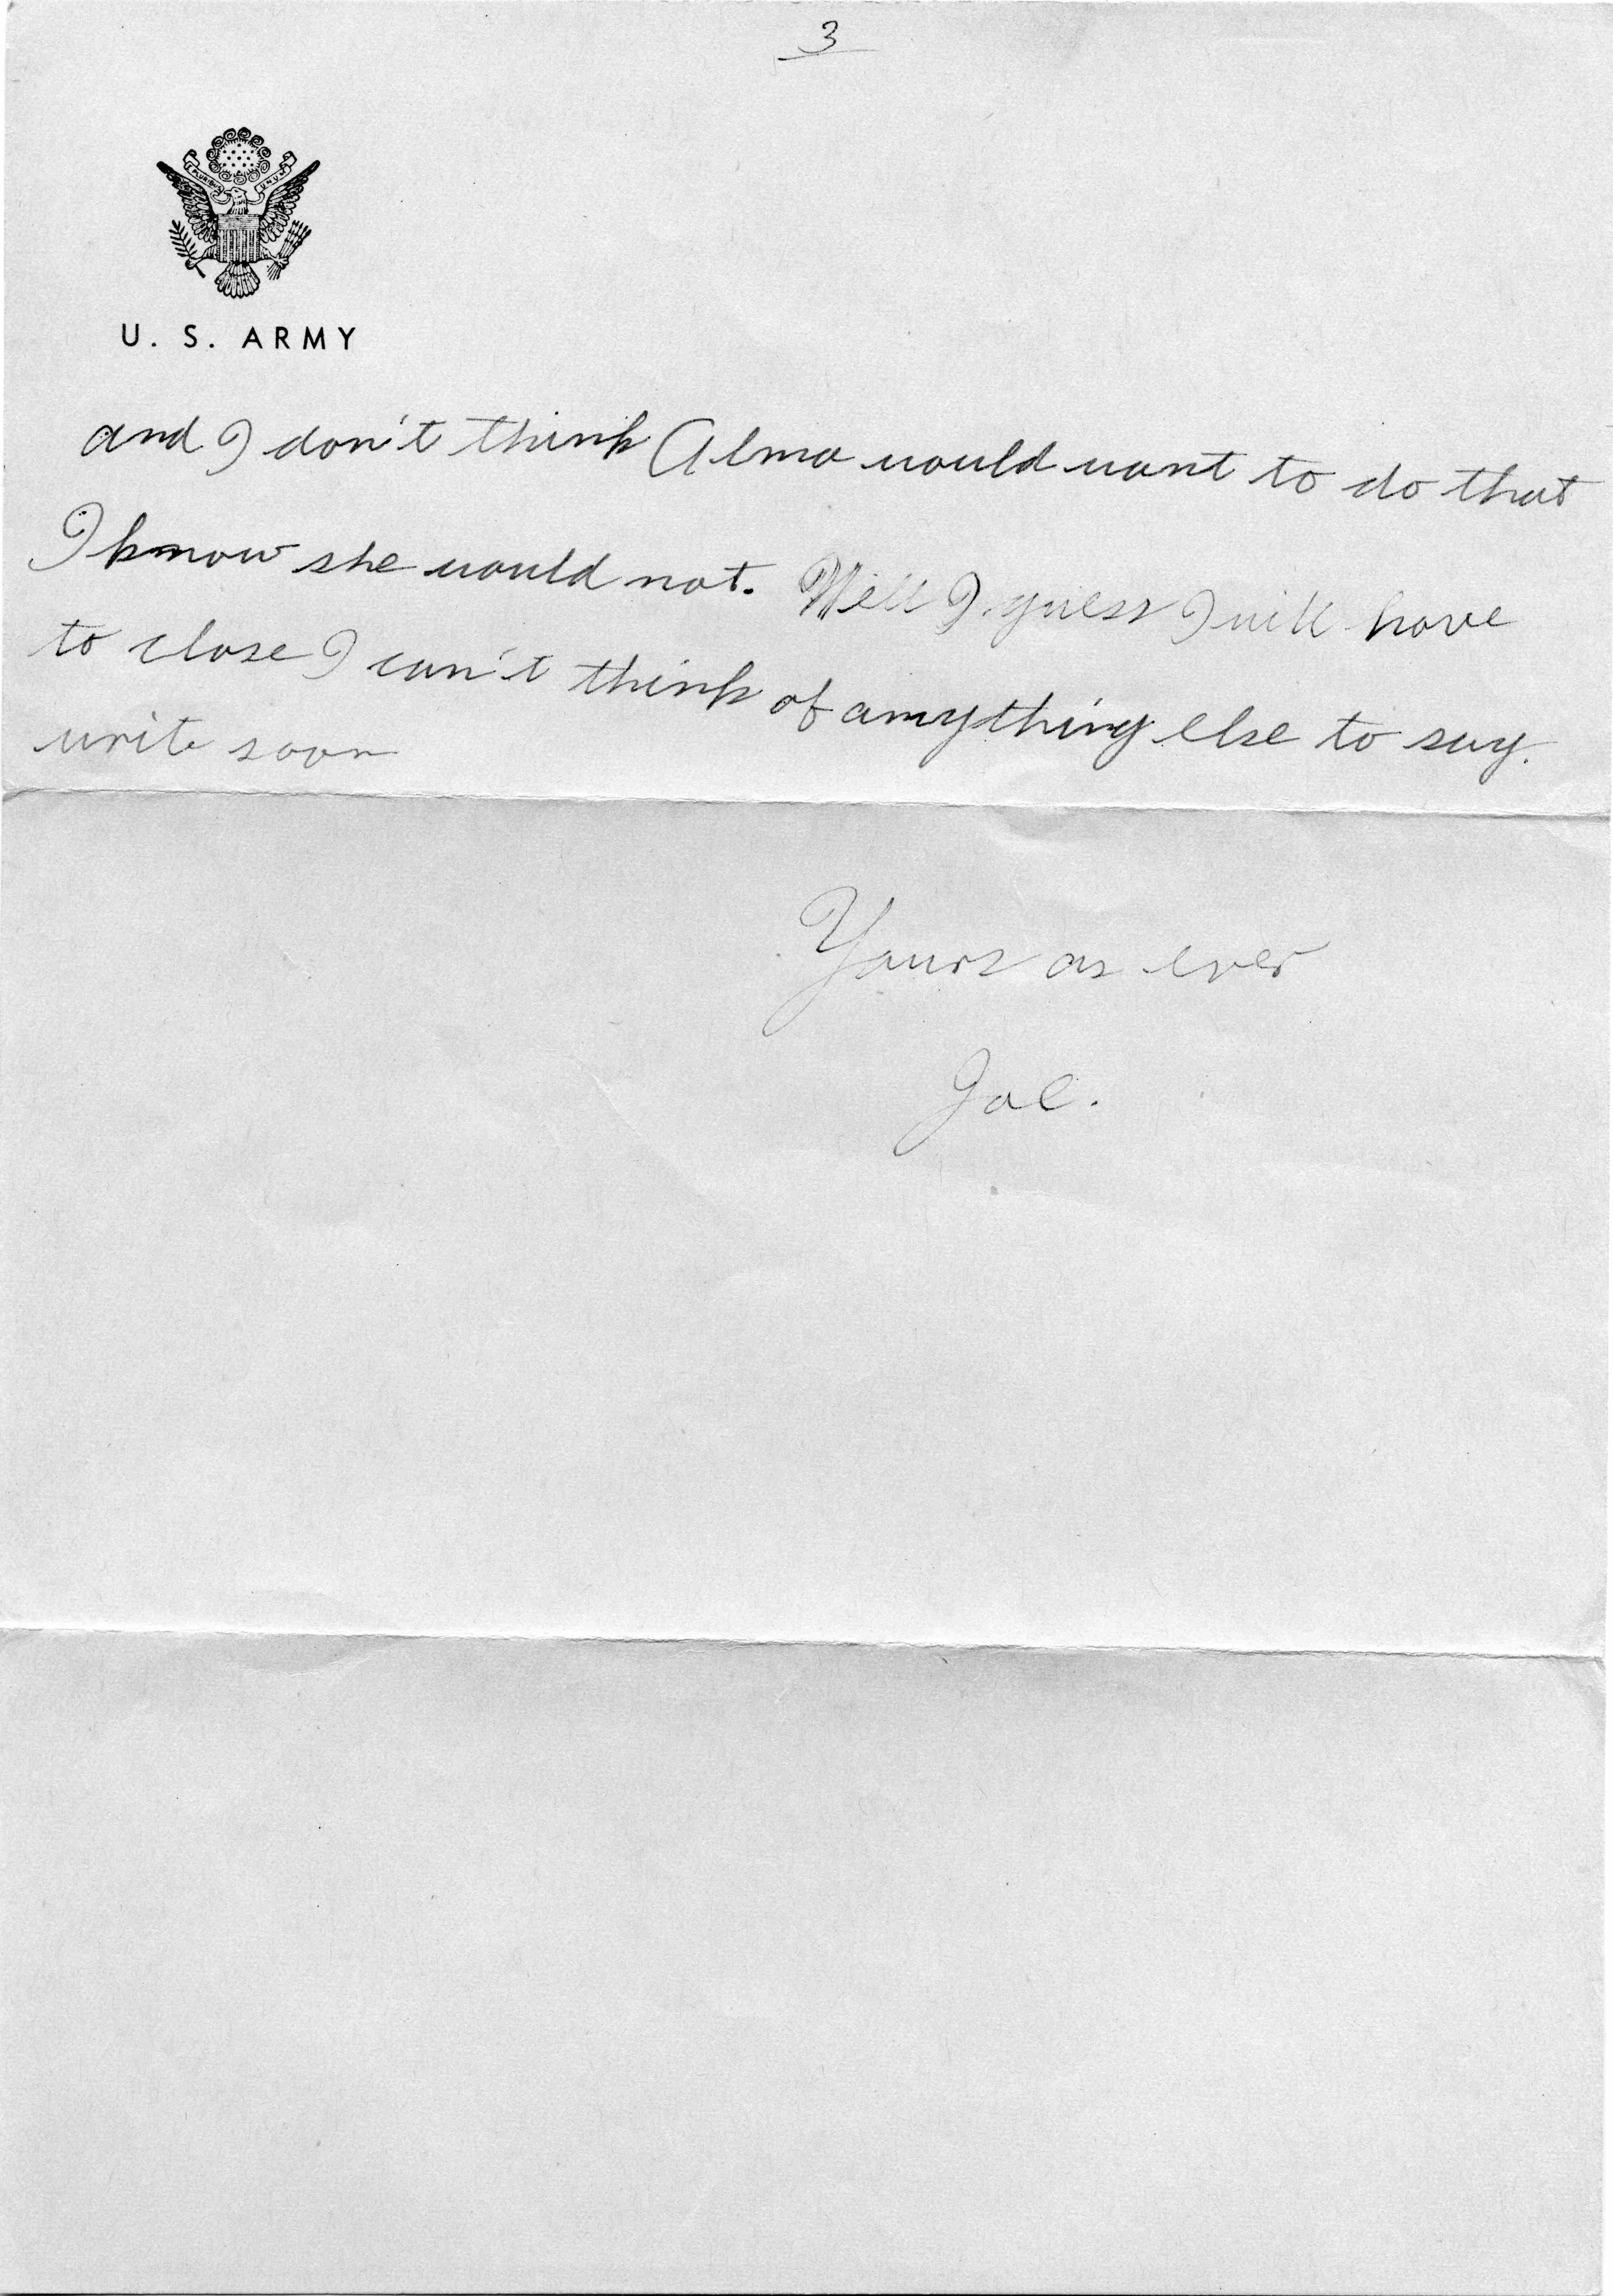 3
PLURIBUS UNUM
U. S. ARMY
and I don't think Alma would want to do that
I know she would not. Well I guess I will have
to close I can't think of anything else to say.
write soon
Yours as ever
Joe.